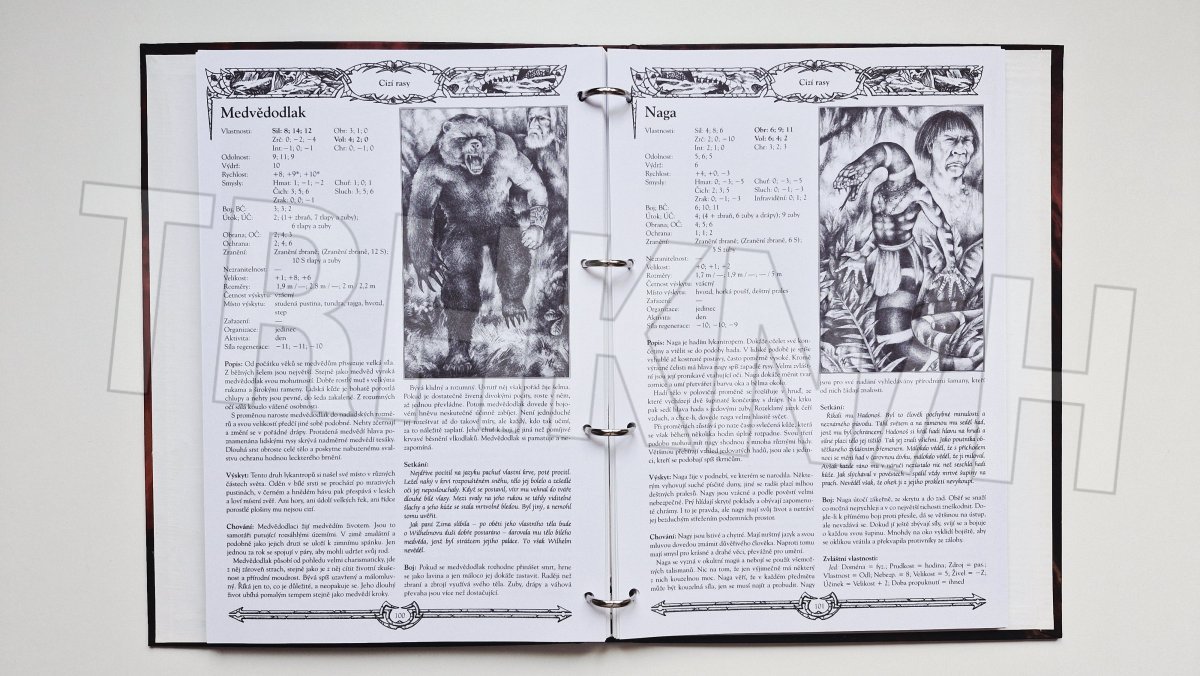 Cizí rasy
Medvědodlak
Vlastnosti: Sil: 8; 14; 12 Obr: 3, 1; 0
Zrč: 0; −2, −4 Vol: 4; 2; 0
Int: −1, 0; −1 Chr: 0, −1, 0
Odolnost: 9, 11, 9
Výdrž: 10
Rychlost: +8; +9*; +10*
Smysly: Hmat: 1; −1; −2 Chuť: 1; 0; 1
Čich: 3, 5, 6 Sluch: 3, 5, 6
Zrak: 0, 0, −1
Boj; BČ: 3; 3; 2
Útok; ÚČ: 2; (1+ zbraň, 7 tlapy a zuby);
6 tlapy a zuby
Obrana; OČ: 2; 4; 3
Ochrana: 2; 4, 6
Zranění: Zranění zbraně; (Zranění zbraně, 12 S);
10 S tlapy a zuby
Nezranitelnost: —
Velikost: +1; +8; +6
Rozměry: 1,9 m / —; 2,8 m / —; 2 m / 2,2 m
Četnost výskytu: vzácný
Místo výskytu: studená pustina, tundra, tajga, hvozd,
step
Zařazení: —
Organizace: jedinec
Aktivita: den
Síla regenerace: −11; −11; −10
Popis: Od počátku věků se medvědům přisuzuje velká síla.
Z běžných šelem jsou největší. Stejně jako medvěd vyniká
medvědodlak svou mohutností. Dobře rostlý muž s velkýma
rukama a širokými rameny. Lidská kůže je bohatě porostlá
chlupy a nehty jsou pevné, do šeda zakalené. Z rozumných
očí sálá kouzlo vážené osobnosti.
S proměnou naroste medvědodlak do nadlidských rozmě-
rů a svou velikostí předčí jiné sobě podobné. Nehty zčernají
a změní se v pořádné drápy. Protažená medvědí hlava po-
znamenána lidskými rysy skrývá nádherné medvědí tesáky.
Dlouhá srst obroste celé tělo a poskytne nabuzenému sval-
stvu ochranu hodnou leckterého brnění.
Výskyt: Tento druh lykantropů si našel své místo v různých
částech světa. Oděn v bílé srsti se prochází po mrazivých
pustinách, v černém a hnědém hávu pak přespává v lesích
a loví místní zvěř. Ani hory, ani údolí velkých řek, ani řídce
porostlé plošiny mu nejsou cizí.
Chování: Medvědodlaci žijí medvědím životem. Jsou to
samotáři panující rozsáhlými územími. V zimě zmalátní a
podobně jako jejich druzi se uloží k zimnímu spánku. Jen
jednou za rok se spojují v páry, aby mohli udržet svůj rod.
Medvědodlak působí od pohledu velmi charismaticky, jde
z něj zároveň strach, stejně jako je z něj cítit životní zkuše-
nost a přírodní moudrost. Bývá spíš uzavřený a málomluv-
ný. Říká jen to, co je důležité, a neopakuje se. Jeho dlouhý
život ubíhá pomalým tempem stejně jako medvědí kroky.
Bývá klidný a rozumný. Uvnitř něj však pořád žije šelma.
Pokud je dostatečně živena divokými pocity, roste v něm,
až jednou převládne. Potom medvědodlak dovede v bojo-
vém hněvu neskutečně účinně zabíjet. Není jednoduché
jej rozeštvat až do takové míry, ale každý, kdo tak učiní,
za to náležitě zaplatí. Jeho chuť k boji je jiná než pomíjivé
krvavé běsnění vlkodlaků. Medvědodlak si pamatuje a ne-
zapomíná.
Setkání:
Nejdříve pocítil na jazyku pachuť vlastní krve, poté procitl.
Ležel nahý v krvi rozpuštěném sněhu, tělo jej bolelo a zcledlé
oči jej neposlouchaly. Když se postavil, vítr mu vehnal do tváře
dlouhé bílé vlasy. Mezi svaly na jeho rukou se táhly viditelné
šlachy a jeho kůže se stala mrtvolně bledou. Byl jiný, a nemohl
tomu uvěřit.
Jak paní Zima slíbila – po oběti jeho vlastního těla bude
o Wilhelmovu duši dobře postaráno – darovala mu tělo bílého
medvěda, jenž byl strážcem jejího paláce. To však Wilhelm
nevěděl.
Boj: Pokud se medvědodlak rozhodne přinášet smrt, hrne
se jako lavina a jen máloco jej dokáže zastavit. Raději než
zbraní a zbrojí využívá svého těla. Zuby, drápy a váhová
převaha jsou více než dostačující.
100
Cizí rasy
Naga
Vlastnosti: Sil: 4; 8; 6 Obr: 6; 9; 11
Zrč: 2; 0, −10 Vol: 6; 4; 2
Int: 2; 1; 0 Chr: 3; 2; 3
Odolnost: 5, 6; 5
Výdrž: 6
Rychlost: +4, +0, −3
Smysly: Hmat: 0; −3; −5 Chuť: 0; −3; −5
Čich: 2; 3; 5 Sluch: 0; −1; −3
Zrak: 0; −1; −3 Infravidění: 0; 1; 2
Boj; BČ: 6; 10; 11
Útok; ÚČ: 4; (4 + zbraň, 6 zuby a drápy); 9 zuby
Obrana; OČ: 4; 5; 6
Ochrana: 1; 1; 2
Zranění: Zranění zbraně; (Zranění zbraně, 6 S);
5 S zuby
Nezranitelnost: —
Velikost: +0; +1; +2
Rozměry: 1,7 m / —; 1,9 m / —, — / 5 m
Četnost výskytu: vzácný
Místo výskytu: hvozd, horká poušť, deštný prales
Zařazení: —
Organizace: jedinec
Aktivita: den
Síla regenerace: −10; −10, −9
Popis: Naga je hadím lykantropem. Dokáže odělet své kon-
četiny a vtělit se do podoby hada. V lidské podobě je spíše
vyhublé až kostnaté postavy, často poměrně vysoké. Kromě
výrazné čelisti má hlava nagy spíš zapadlé rysy. Velmi zvlášt-
ní jsou její pronikavé vtahující oči. Naga dokáže měnit tvar
zornice a umí přetvářet i barvu oka a bělma okolo.
Hadí tělo v poloviční proměně se rozšiřuje v hruď, ze
které vycházejí dvě šupinaté končetiny s drápy. Na krku
pak sedí hlava hada s jedovými zuby. Rozeklaný jazyk čeří
vzduch, a chce-li, dovede naga velmi hlasitě syčet.
Při proměnách zůstává po naze často svlečená kůže, která
se však během několika hodin úplně rozpadne. Svou třetí
podobu mohou mít nagy shodnou s mnoha různými hady.
Většinou přebírají vzhled jedovatých hadů, jsou ale i jedin-
ci, kteří se podobají spíš škrtičům.
Výskyt: Naga žije v podnebí, ve kterém se narodila. Někte-
rým vyhovuje suché písčité duny, jiné se radši plazí mlhou
deštných pralesů. Nagy jsou vzácné a podle pověstí velmi
nebezpečné. Prý hlídají skryté poklady a obývají zapomenu-
té chrámy. I to je pravda, ale nagy mají svůj život a netráví
jej bezduchým střežením podzemních prostor.
Chování: Nagy jsou lstivé a chytré. Mají mrštný jazyk a svou
mluvou dovedou zmámit důvěřivého člověka. Naproti tomu
mají smysl pro krásné a drahé věci, převážně pro umění.
Naga se vyzná v okultní magii a nebojí se použít všemož-
ných talismanů. Nic na tom, že jen výjimečně má některý
z nich kouzelnou moc. Naga věří, že v každém předmětu
může být kouzelná síla, jen se musí najít a probudit. Nagy
jsou pro své nadání vyhledávány přírodními šamany, kteří
od nich žádají znalosti.
Setkání:
Říkali mu Hadonoš. Byl to člověk pochybné minulosti a
neznámého původu. Táhl světem a na rameni mu seděl had,
jenž mu byl ochráncem. Hadonoš si hřál hadí hlavu na hrudi a
silné plazí tělo jej tížilo. Tak jej znali všichni. Jako poutníka ob-
těžkaného zvláštním břemenem. Málokdo věděl, že s příchodem
noci se mění had v čarovnou dívku, málokdo věděl, že ji miloval.
Avšak každé ráno mu v náručí nezůstalo nic než seschlá hadí
kůže. Jak slýchával v pověstech – spálil vždy mrtvé šupiny na
prach. Nevěděl však, že oheň ji z jejího prokletí nevykoupí.
Boj: Naga útočí zákeřně, ze skrytu a do zad. Oběť se snaží
co možná nejrychleji a v co největší tichosti zneškodnit. Do-
jde-li k přímému boji proti přesile, dá se většinou na ústup,
ale nevzdává se. Dokud jí ještě zbývají síly, svíjí se a bojuje
s každou svou šupinou. Mnohdy na oko vyklidí bojiště, aby
se oklikou vrátila a překvapila protivníky ze zálohy.
Zvláštní vlastnosti:
Jed: Doména = fyz.; Prudkost = hodina; Zdroj = pas.;
Vlastnost = Odl; Nebezp. = 8; Velikost = 5; Živel = −Z,
Účinek = Velikost + 2; Doba propuknutí = ihned
101